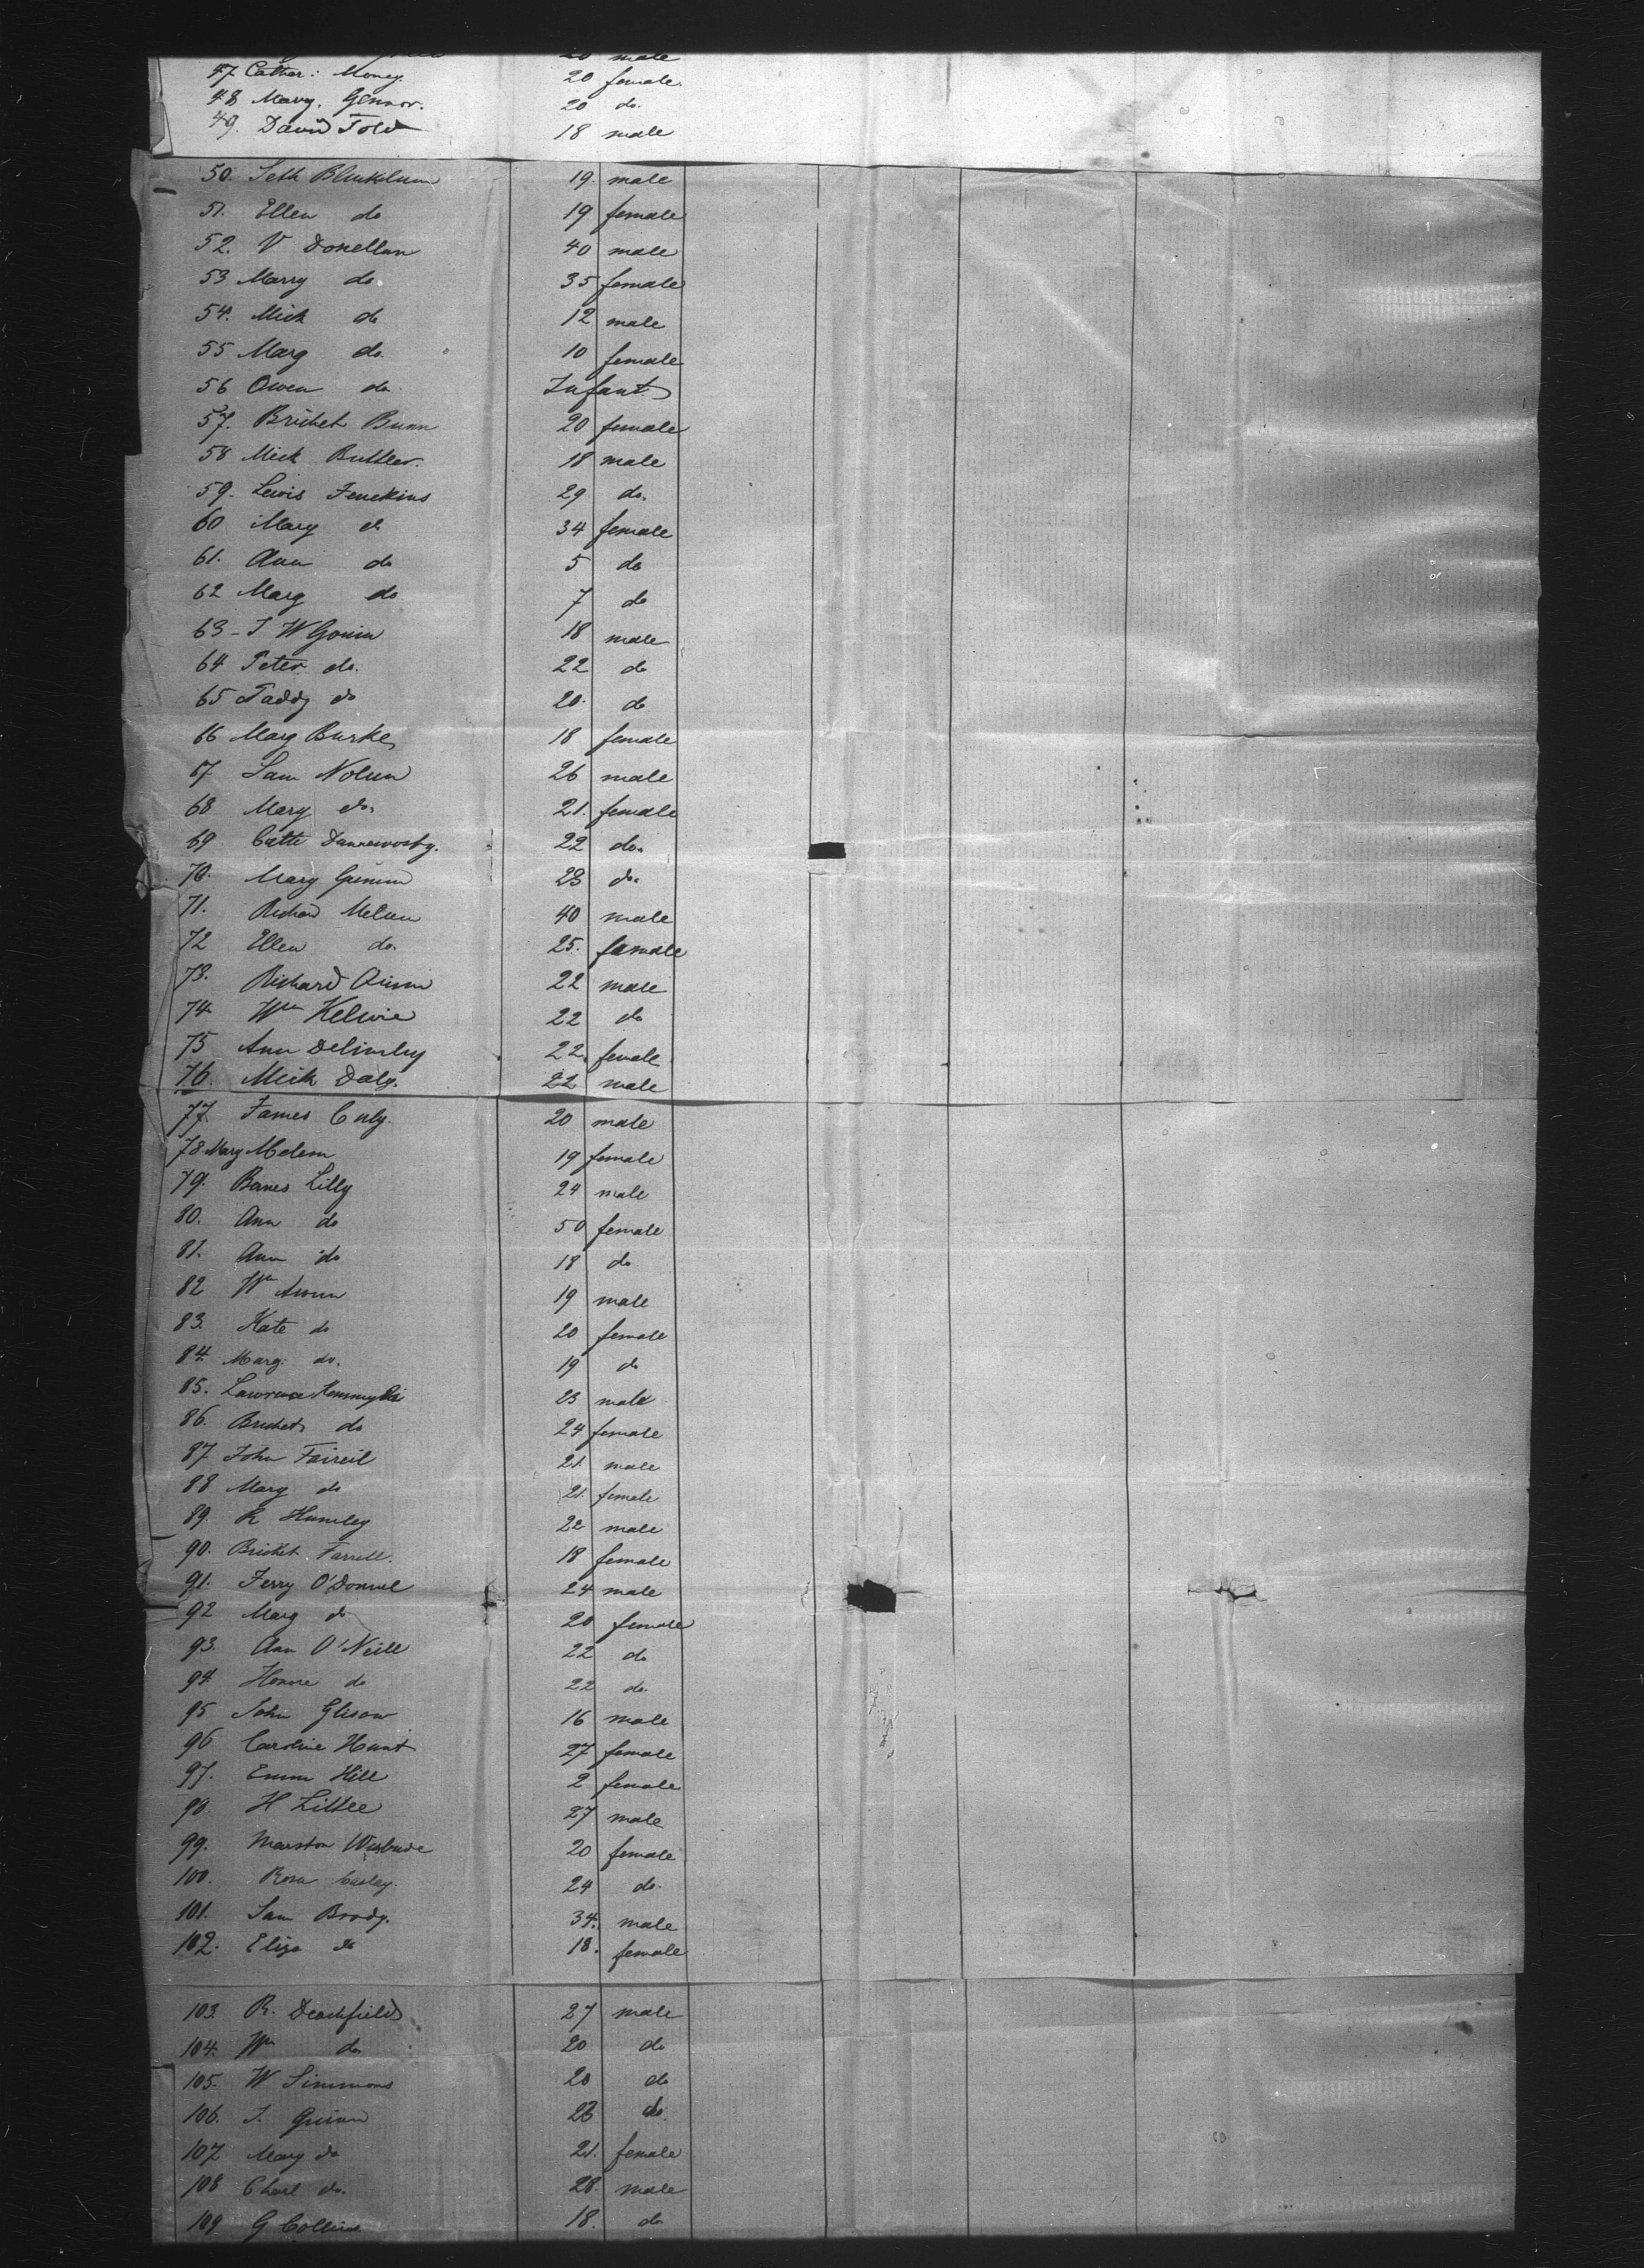 male
47 Cather: Money. 20 female.
48 Marg. Gennor. 20 do.
49. David Told 18 male
50. Seth 19. male
51. Ellen do 19 female
52. V Donellan 40 male
53 Marry do. 35 female
54. Mick do 12 male
55 Marg do. 10 female
56 Owen do. Infant
57. Brichet Bunn 20 female
58 Mick Buttler. 18 male
59. Lewis Jenckins 29 do.
60 Mary do 34 female
61. Ann do 5 do
62 Marg do 7 do
63 - J W 18 male
64 Peter do. 22 do
65 Paddy do 20. do
66 Mary Burke 18 female
67 Sam Nolun 26 male
68 Mary do. 21. female
69 Cath 22 do.
70. Mary 23 do.
71. Richard Melun 40 male
72 Ellen do. 25. female
73. Richard 22 male
74. Wm Kelwie 22 do
75 Ann 22. female
76. Mick Daly. 22 male
77. James Culy. 20 male
78. Mary Melem 19 female
79. Barnes Lilly 24 male
80. Ann do 50 female
81. Ann do 18 do
82 Wm 19 male
83. Kate do 20 female
84. Marg: do. 19 do
85. Lawrence 23 male
86. Brichet do 24 female
87 John Faireil 21. male
88 Mary do 21. female
89. R Humley 22 male
90. Bricket Farrell. 18 female
91. Jerry O'Donnel 24 male
92 Marg do 20 female
93. Ann O'Neill 22 do
94. Honore do 22 do.
95 John Glisow 16 male
96 Caroline Hunt 27 female
97. Emm Hill 2 female
98. H Little 27 male
99. 20 female
100. Rosa Casley. 24 do.
101. Sam Brody. 34. male
102. Eliza do 18. female
103. R. Deachfield 27 male
104. Wm do 20 do
105. W Simmons 20 do
106. J. Guinn 23 do.
107 Mary do 21. female
108 Charl do. 28. male
109 G Collins 18. do